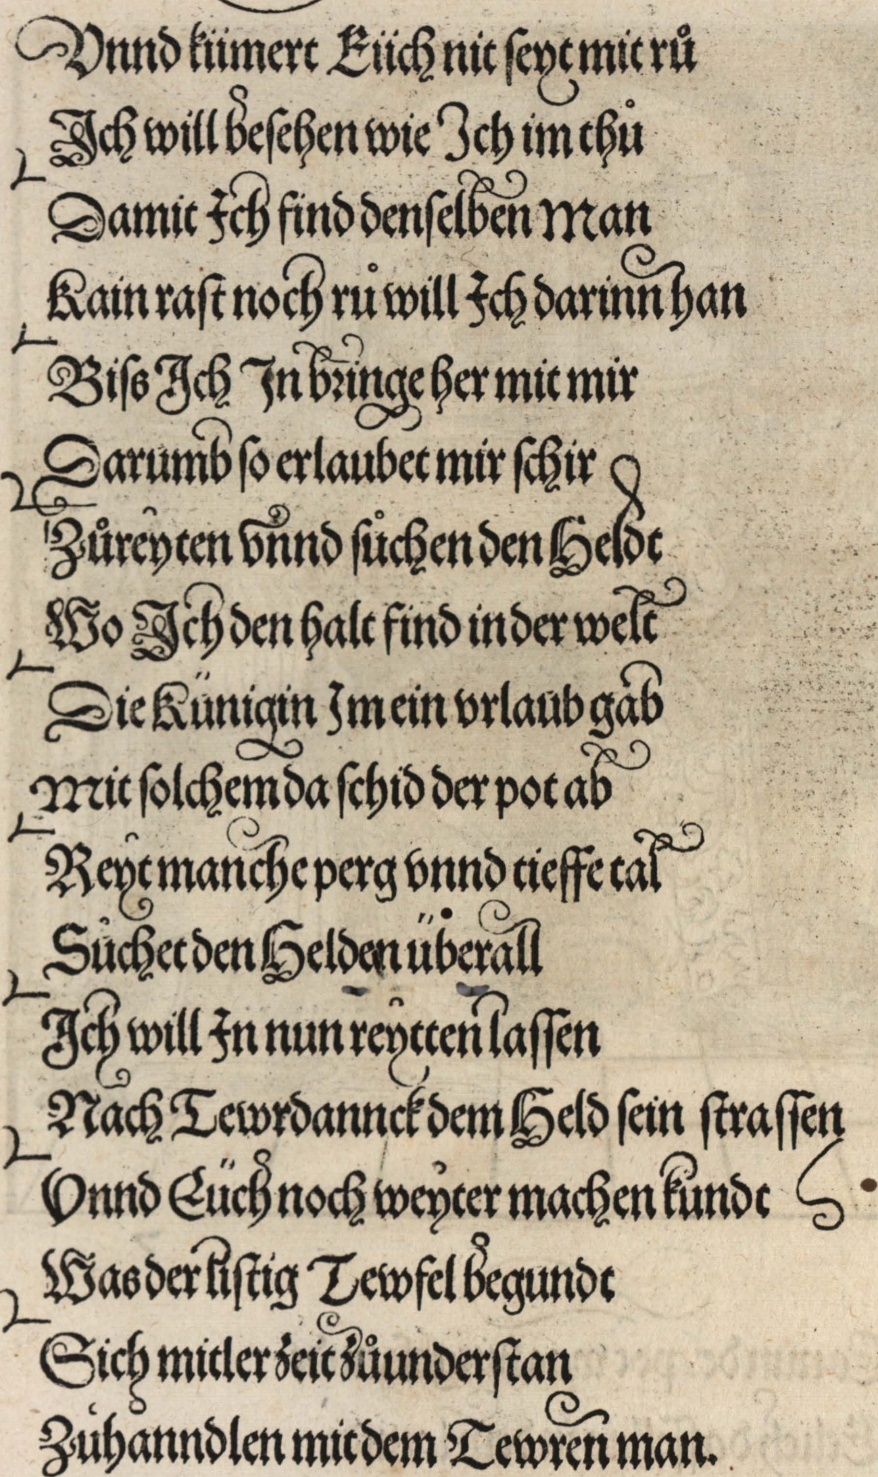 Vnnd kümert Eüch nit seyt mit rů
Ich will besehen wie Ich im thů
Damit Ich find denselben Man
Kain rast noch rů will Ich darinn han
Biss Ich In bringe her mit mir
Darumb so erlaubet mir schir
Zůreyten vnnd sůchen den Heldt
Wo Ich den halt find in der welt
Die Künigin Im ein vrlaub gab
Mit solchem da schid der pot ab
Reyt manche perg vnnd tieffe tal
Sůchet den Helden überall
Ich will In nun reytten lassen
Nach Tewrdannck dem Held sein strassen
Vnnd Eüch noch weyter machen kundt
Was der listig Tewfel begundt
Sich mitler zeit zůunderstan
Zůhanndlen mit dem Tewren man.